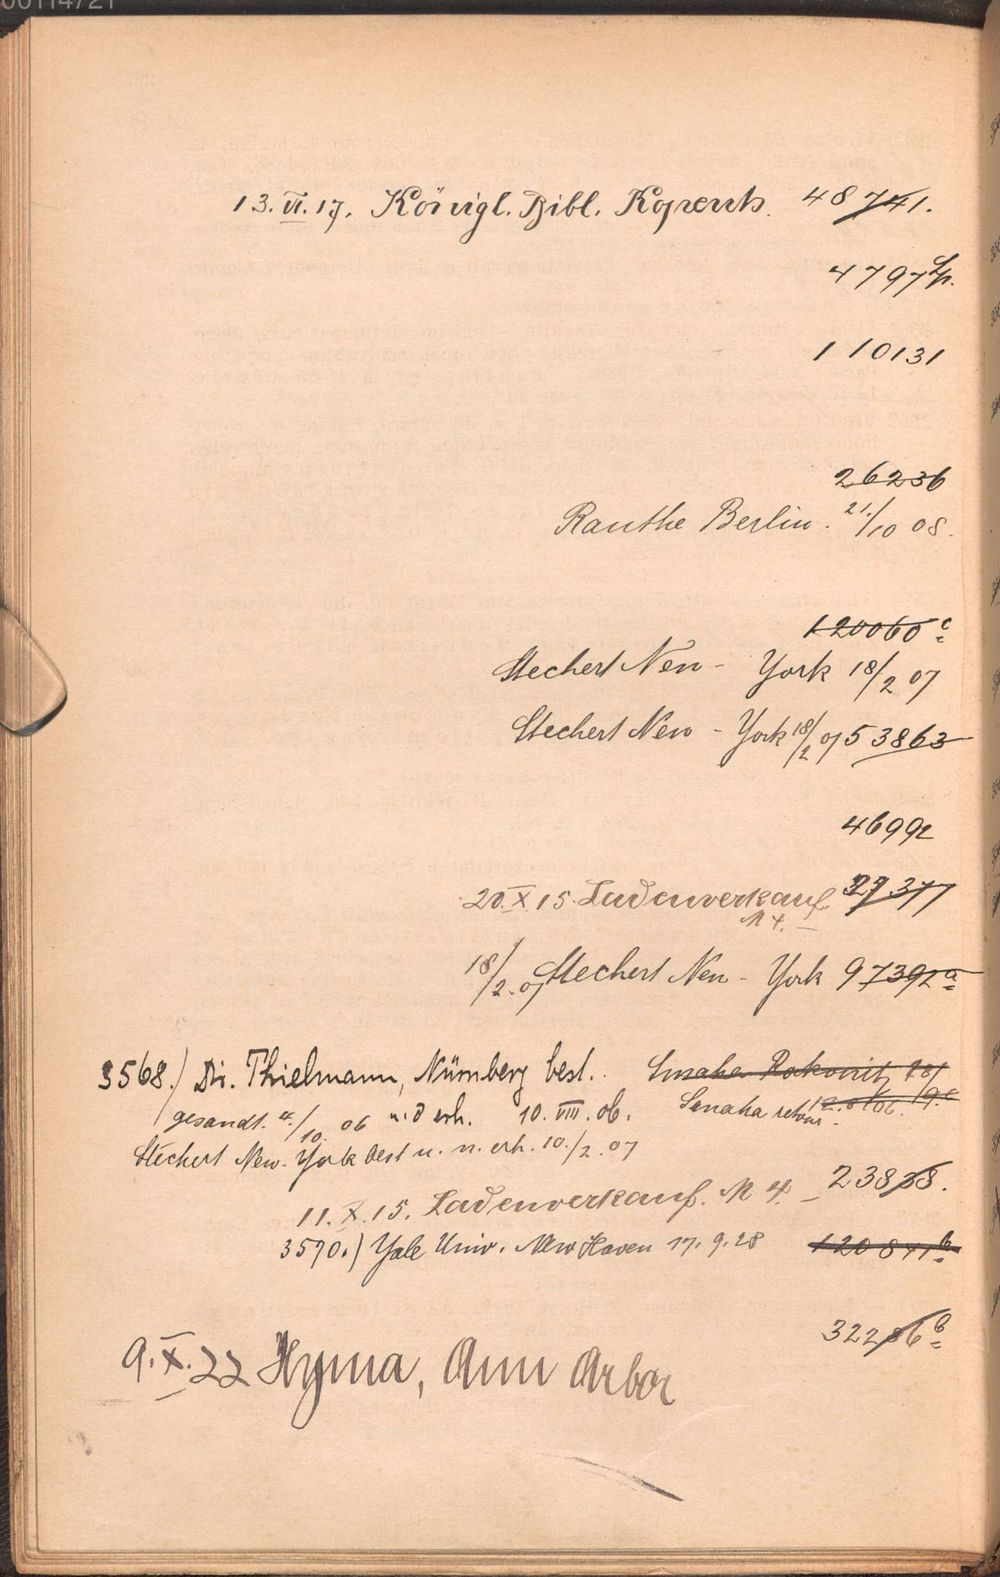 00114721
13.VI.17. Königl. Bibl. Kopenh. 48741.
4797
110131
26236
Rauthe Berlin. 21./10 08.
120060 c
Stechert New-York 18/2 07
Stechert New-York 18/2 07 53863
46992
20.X.15. Ladenverkauf 27377
M 4.–
18/2.07 Stechert New-York 97392 a
3568.) Dir. Thielmann, Nürnberg best. Smaha Rakonitz
gesandt. 4./10. 06 u. d erh. 10.VIII.06. Smaha retour 12.
Stechert New-York best u. n. erh. 10./2.07
11.X.15. Ladenverkauf. M 4.– 23838.
3570.) Yale Univ. New Haven 17.9.28 120841 b
32286 b
9.X.22 Hyma, Ann Arbor